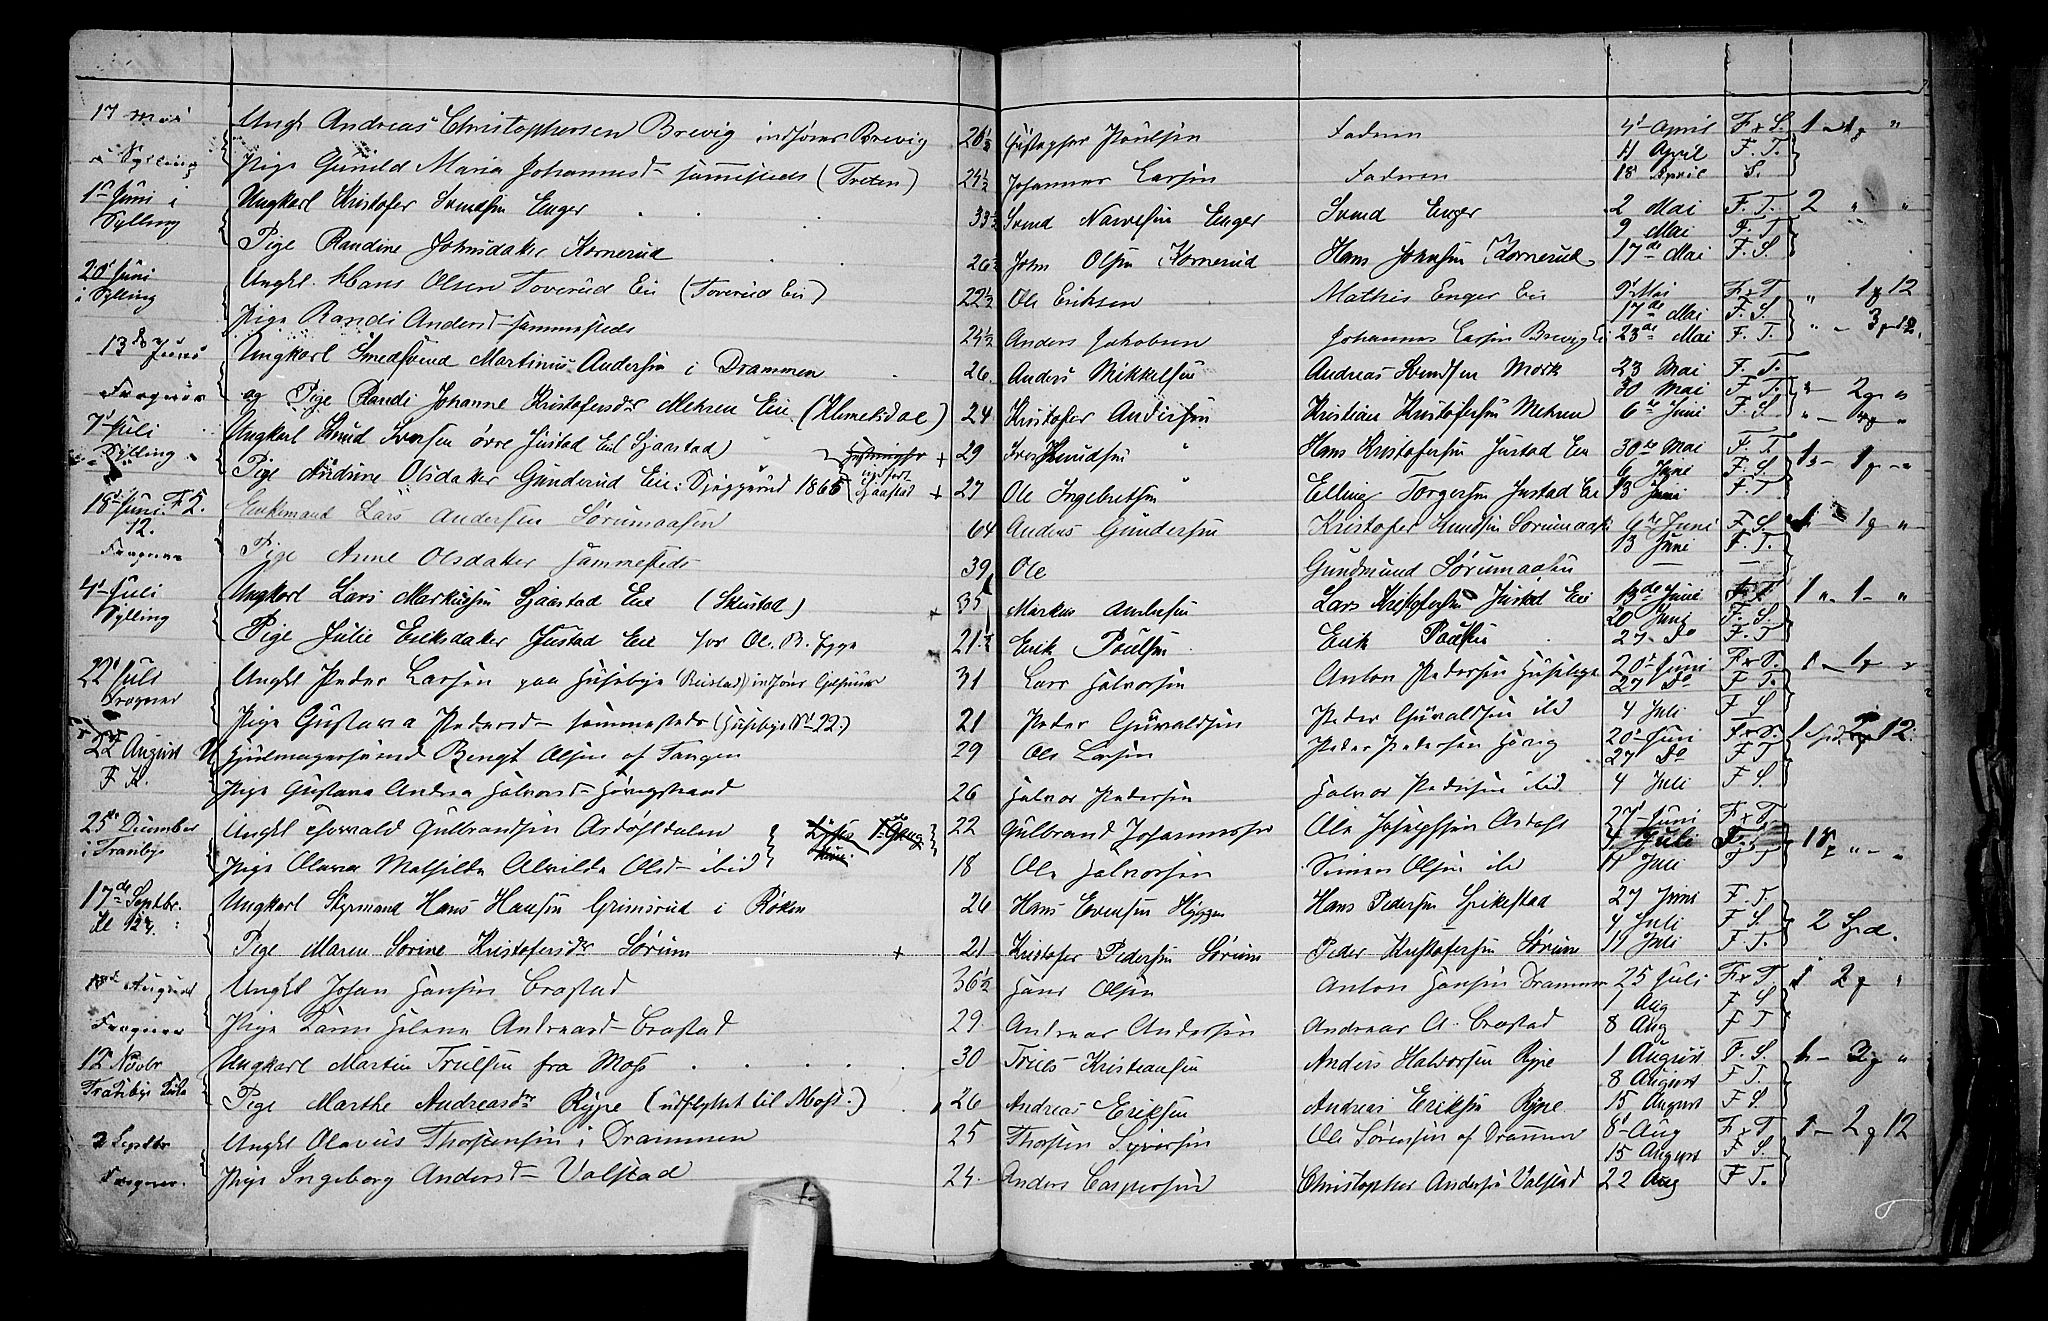 17 mai Ungk Andreas Christophersen Brevig indføres Brevig 26½ Christopher Poulsen Faderen 4 April F. S. 1 - 1 "
Sylling Pige Gunild Maria Johannesd sammesteds (Treten) 24½ Johannes Larsen Faderen 11 April F. T.
18 April S.
1 Juni i Sylling Ungkarl Kristofer Svendsen Enger 33½ Svend Narvesen Enger Svend Enger 2 Mai F. T. 2 " "
9 Mai F. T
Pige Randine Johnsdatter Kornerud 26½ John Olsen Kornerud Hans Johnsen Kornerud 17de Mai F. S.
20 Juni i Sylling Ungk. Hans Olsen Toverud Eie (Toverud Eie) 22½ Ole Eriksen Mathis Enger Eie 9 Mai F. T " 1 12
17de Mai F. S.
Pige Randi Andersd sammesteds 24½ Anders Jakobsen Johannes Larsen Brevig Ei 23de Mai F. T.
13 Ungkarl Smedsvend Martinus Andersen i Drammen 26 Anders Mikkelsen Andreas Svendsen Mork 23 Mai F. T.
30 Mai F T. 2
og Pige Randi Johanne Kristofersdr Mehren Eie (Himelsdal) 24 Kristofer Andersen Kristian Kristofersen Mehren 6te Juni F. S.
7 Juli Sylling Ungkarl Knud Iversen øvre Justad Eie Gjaastad) + 29 Iver Knudsen Hans Kristofersen Justad Eie 30te Mai F. T. 1 - 1
6 Juni F. S
Pige Andrine Olsdatter Gunderud Eie 1865 indført Gjaastad + 27 Ole Ingebretsen Elling Torgersen Justad Eie 13 Juni F. T
18 Juni F 5. 12. Enkemand Lars Andersen Sørumaasen 64 Anders Gundersen Kristofer Knudsen Sørumaas 6te Juni F. S. 1 - 1 "
13 Juni F. T.
Pige Anne Olsdatter sammesteds 39 Ole Gundmund Sørumaasen —
4 Juli Sylling Ungkarl Lars Markussen Gjaastad Eie (Skustad) + 35 Markus Andersen Lars Kristofersen Justad Eie 13de Juni F. T 1 " 1 - "
20 Juni F. S.
Pige Julie Eriksdatter Justad Eie for Ole B. Egge 21½ Erik Poulsen Erik Poulsen 27 Do F. T
22 Juli Frogner Ungkl Peder Larsen paa Huseby (Reistad) indføres 31 Lars Halvorsen Anton Pedersen Huseby 20 Juni F. S. 1 - 1
27 Do F T.
Pige Gustava Pedersd sammesteds (Huseby No 22) 21 Peder Gunvaldsen Peder Gunvaldsen ibd 4 Juli F S
22 August F. K. Hjulmagersvend Bengt Olsen af Tangen 29 Ole Larsen Peder Pedersen Hørig 20 Juni F. S. 12.
27 Do F T
Pige Gustava Andrea Halvorsd Hørigstrand 26 Halvor Pedersen Halvor Pedersen ibid 4 Juli F S.
25de December i Tranby Ungkl Thorvald Gulbrandsen Asdøhldalen 22 Gulbrand Johannessen Ole Josephsen Asdøhl 27 Juni F. T.
4 Juli F.
Pige Olava Mathilde Alvilde Olsd ibid 18 Ole Halvorsen Simen Olsen ibd 11 Juli F T
17de Septbr. Kl 12 Ungkarl Styrmand Hans Hansen Grimsrud i Røken 26 Hans Evensen Hyggen Hans Pedersen Gikestad 27 Juni F. T. 2 Spd.
4 Juli F S.
Pige Maren Sorine Kristofersdr Sørum + 21 Kristofer Pedersen Sørum Peder Kristofersen Sørum 11 Juli F T.
August Frogner Ungkl Johan Hansen Brastad 36½ Hans Olsen Anton Hansen Drammen 25 Juli F. T. 1 2 "
1 Aug F S
Pige Karen Helene Andreasd Brastad 29. Andreas Andersen Andreas A. Brastad 8 Aug F T
12 Novbr Tranby Kirke Ungkarl Martin Trulsen fra Moss 30 Truls Kristiansen Anders Halvorsen Rype 1 August F. S. 1 - 2 "
8 August F T.
Pige Marthe Andreasdr Rype (udflyttet til Moss.) 26 Andreas Eriksen Andreas Eriksen Rype 15 August F S.
2 Septbr Frogner. Ungkl Olavus Thorstensen i Drammen 25 Thorsten Syversen Ole Sørensen af Drammen 8 Aug F. T 1 - 2 12
15 August F S.
Pige Ingeborg Andersd Valstad 24. Anders Caspersen Christopher Andersen Valstad 22 Aug F T.